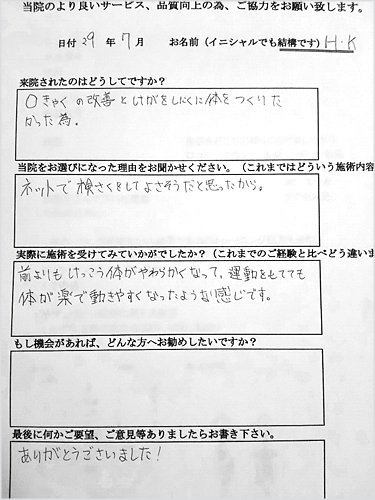 当院のより良いサービス、品質向上の為、ご協力をお願い致します。
日付 29 年 7 月 お名前(イニシャルでも結構です) H.K
来院されたのはどうしてですか?
O きゃくの改善とけがをしにくい体をつくりた
かった為。
当院をお選びになった理由をお聞かせください。(これまではどういう施術内容
ネットで検さくをしてよさそうだと思ったから。
実際に施術を受けてみていかがでしたか?(これまでのご経験と比べどう違いま
前よりもけっこう体がやわらかくなって、運動をしてても
体が楽で動きやすくなったような感じです。
もし機会があれば、どんな方へお勧めしたいですか?
最後に何かご要望、ご意見等ありましたらお書き下さい。
ありがとうございました!